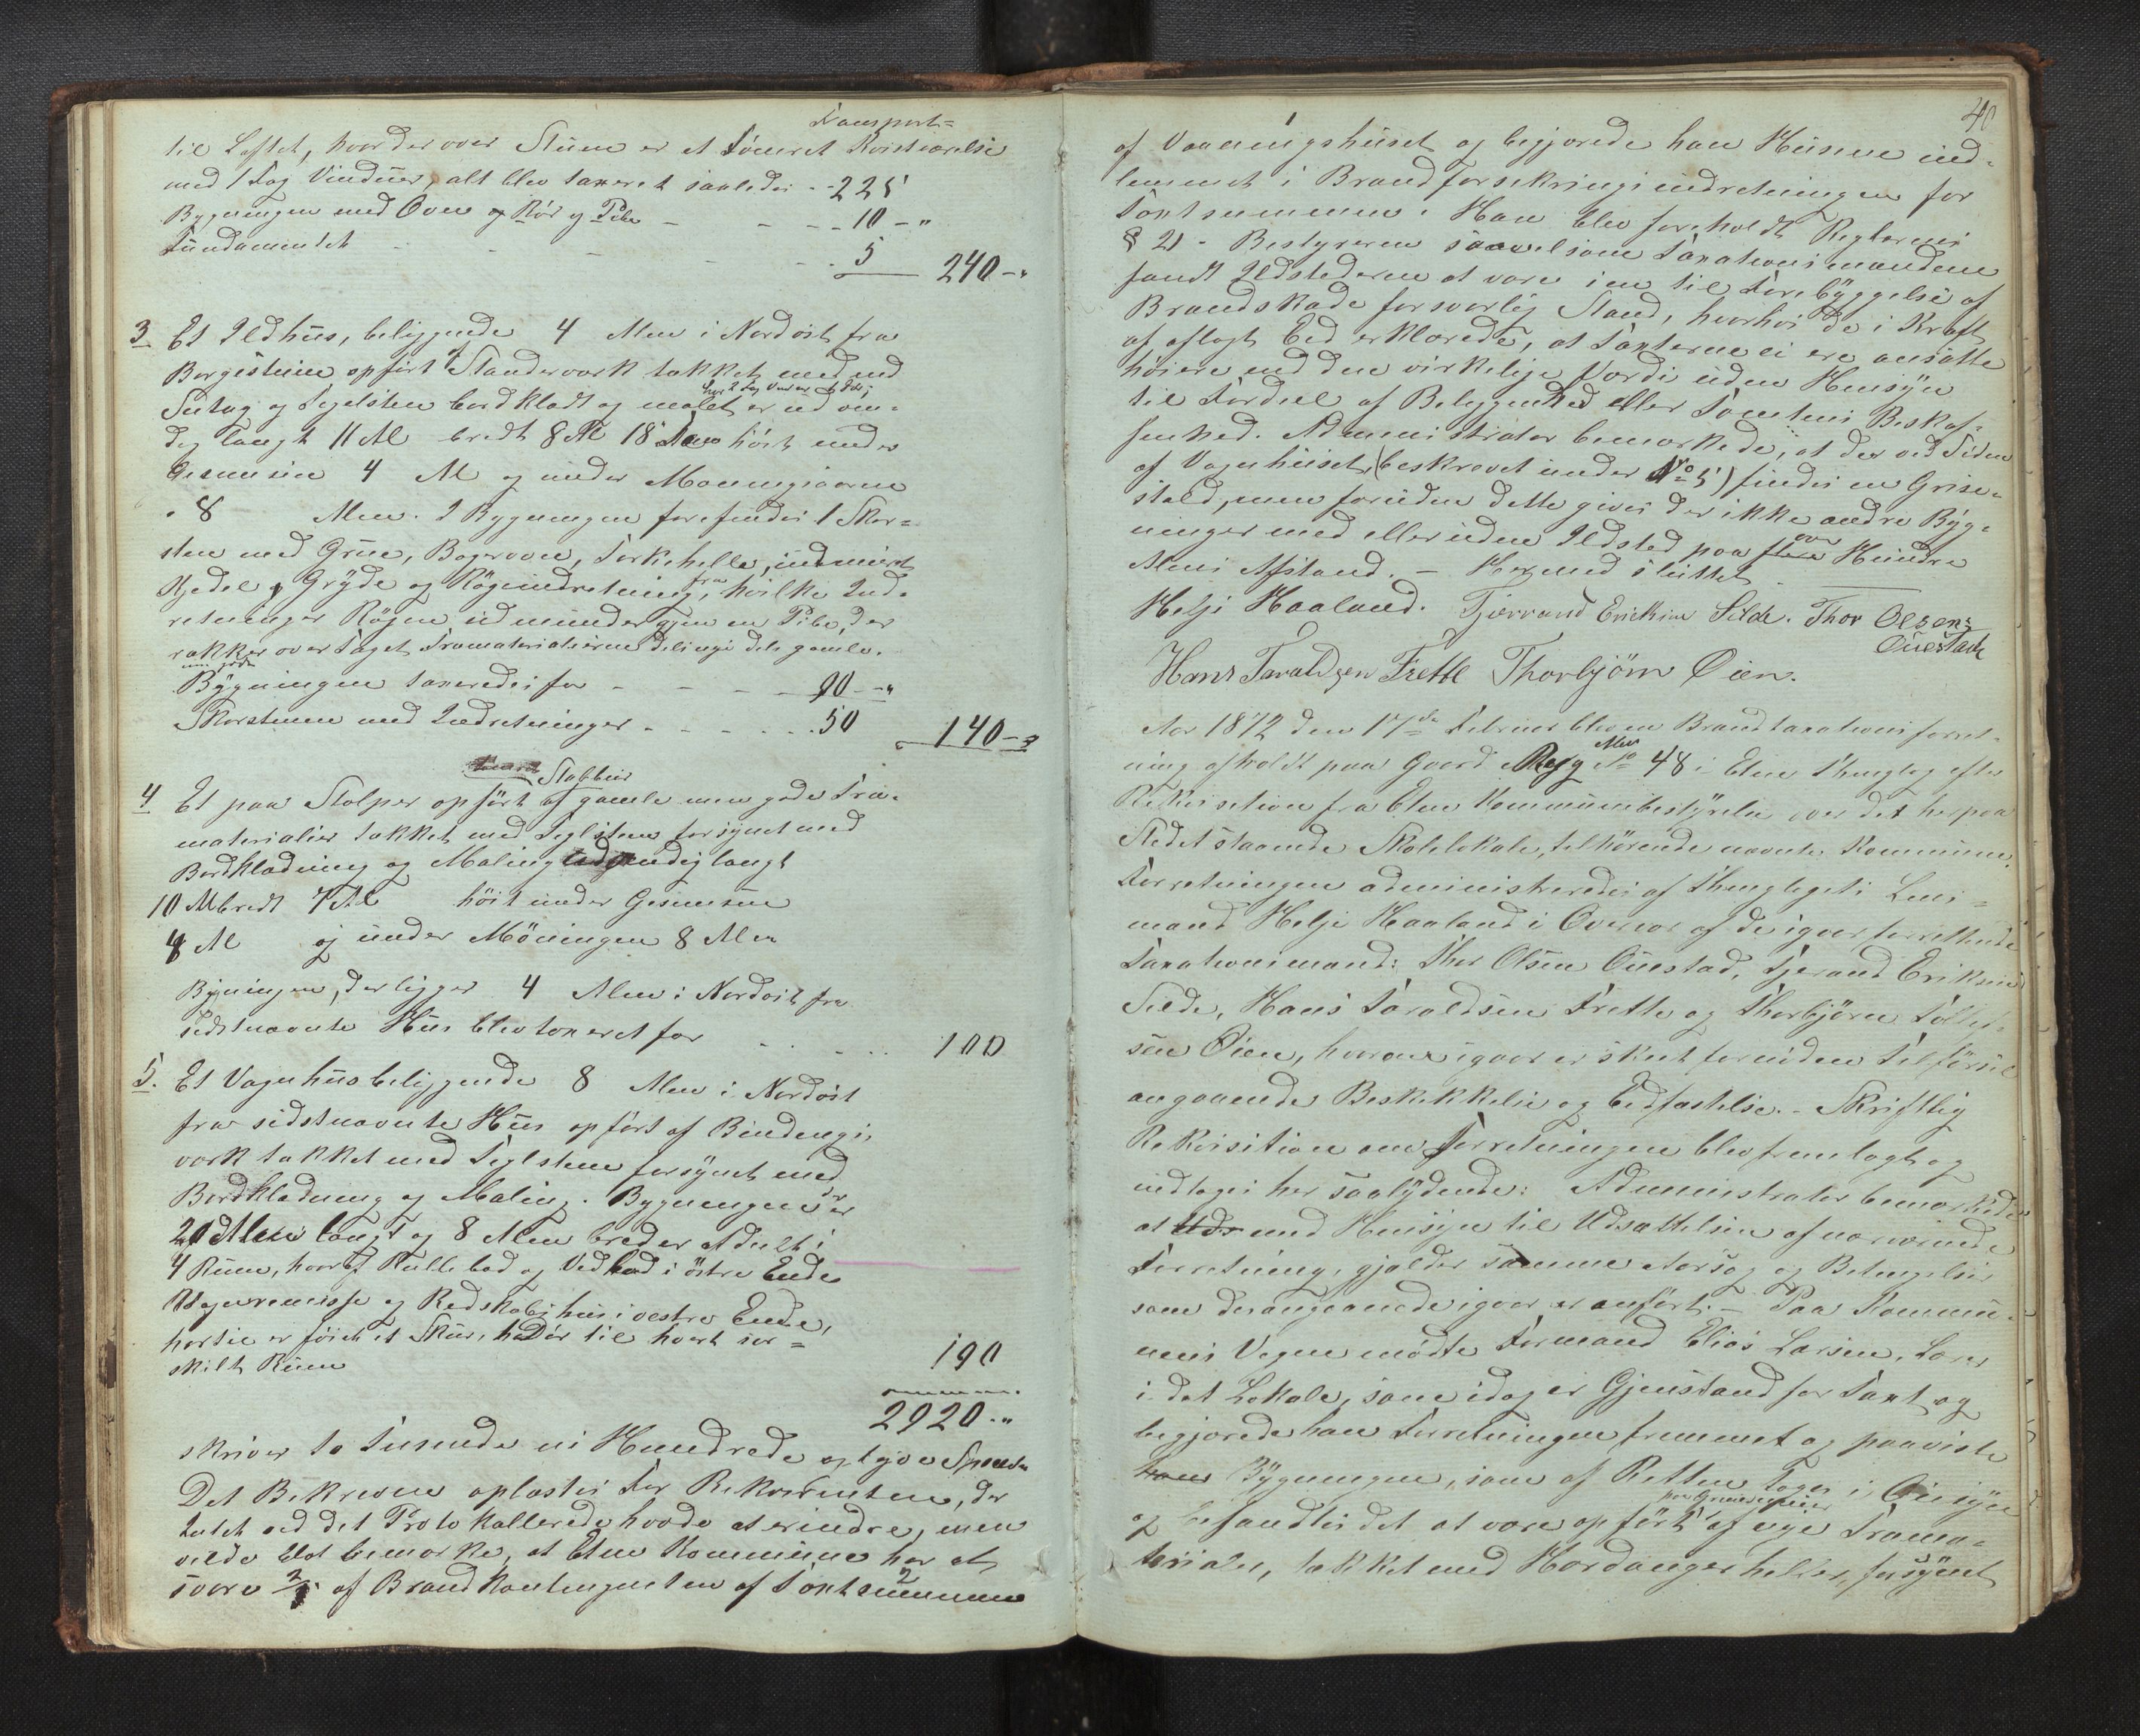 Transport=
til Loftet, hvor der over Stuen er et tömret Kvistværelse
med 1 Fag Vinduer, alt blev taxeret saaledes - - 225
Bygningen med Ovne og Rör og Pibe - - - - 10 - "
Fundamentet - - - - - 5 240 - "
3 Et Ildhus, beliggende 4 Alen i Nordöst fra
Borgestuen opfört af Standerværk takket med
Sutag og Tegelsten bordklædt og malet er udven-
har 2 Fag Vinduer
dig langt 11 Al bredt 8 Al 18 höit under
Gesimsen 4 Al og under Mönningsaasen
8 Alen. I Bygningen forefindes 1 Skor=
sten med Grue, Bagerovn, Törkehelle, indmuret
Kjedel, Gryde og Rögindretning, fra hvilke Ind-
retninger Rögen udmunder gjennem Pibe, der
rækker over Taget. Træmaterialierne deels nye dels gamle.
men gode
Bygningen taxeredes for - - - - 90 - "
Skorstenen med Indretninger - - - - 50 140 - "
Stabbur
4 Et paa Stolper opfört af gamle men gode Træ-
materialier takket med Teglsten forsynet med
Bordklædning og Maling udvendig langt
10 Al bredt 7 Al höit under Gesimsen
4 Al og under Möningen 8 Alen
Bygningen, der ligger 4 Alen i Nordöst fra
sidstnævnte Hus blev taxeret for - - - - 100
5. Et Vognhus beliggende 8 Alen i Nordöst
fra sidstnævnte Hus opfört af Bindings-
værk takket med Teglsten forsynet med
Bordklædning og Maling. Bygningen er
20 Alen langt og 8 Alen bred er afdelt i
4 Rum, hvoraf Kullelad og Vedlad i östre Ende
Vognremisse og Redskabshus i vestre Ende,
hertil er föiet et Skur, h Dör til hvert sær=
skilt Rum 190
2920 - "
skriver to Tusende ni Hundrede og tyve Specidr
Det Bekrevne oplæstes for Rekvirenten, der
Intet ved det Protokollerede havde at erindre, men
vilde blot bemærke, at Etne Kommune har at
svare 2/5 af Brandkontingenten af Taxtsummen
40
af Vaaningshuset og begjærede han Husene ind-
lemmet i Brandforsikringsindretningen for
Taxtsummen. Han blev foreholdt Reglernes
§ 21 - Bestyreren saavelsom Taxationsmændene
fandt Ildstederne at være i en til Forebyggelse af
Brandskade forsvarlig Stand, hvorhos de i Kraft
af aflagt Eed erklærede, at Taxterne ei ere ansatte
höiere end den virkelige Værdi uden Hensyn
til Fordeel af Beliggenhed eller Tomtens Beskaf-
fenhed. Administrator bemærkede, at der ved Siden
af Vognhuset (beskrevet under No 5) findes en Grise-
stald, men foruden dette gives der ikke andre Byg-
ninger med eller uden Ildsted paa over Hundre
Alens Afstand. - Hermed sluttet.
Helje Haaland. Tjerrand Ericksen Silde. Thor Olsen
Ouestad
Hans Taraldsen Frette Thorbjörn Øien.
Aar 1872 den 17de Februar blev en Brandtaxationsforret-
ning afholdt paa Gaard No 48 i Etne Thinglag efter
Rekvisition fra Etne Kommunebestyrelse over det her paa
Stedet staaende Skolelokale, tilhörende nævnte Kommune.
Forretningen administreredes af Thinglagets Lens-
mand Helje Haaland i Overvær af de igaar forrettende
Taxationsmænd: Thor Olsen Ouestad, Tjerand Eriksen
Silde, Hans Taraldsen Frette og Thorbjörn Tolleif-
sen Øien, hvorom igaar er skeet fornöden Tilförsel
angaaende Beskikkelse og Eedfæstelse. - Skriftlig
Rekvisition om Forretningen blev fremlagt og
indtages her saalydende: Administrator bemærkede
at med Hensyn til Udsættelsen af nærværende
Forretning, gjælder samme Aarsag og Betingelse
som desangaaende igaar er anfört. - Paa Kommu-
nens Vegne mödte Formand Elias Larsen, Lærer
i det Lokale, som idag er Gjenstand for Taxt og
begjærede han Forretningen fremmet og paaviste
Bygningen, som af Retten toges i Öiesyn
og befandtes det at være opfört af nye Træma-
paa Grundmuur
terialer, takket med Hardangerheller, forsynet